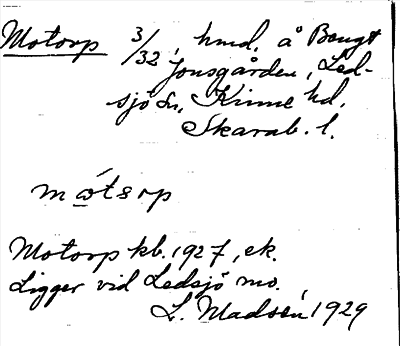 Motorp 3/32, hmd. å Bengt
Jonsgården, Led-
sjö sn, Kinne hd.
Skarab. l.
mótorp
Motorp kb. 1927, ek.
Ligger vid Ledsjö mo.
L. Madsén, 1929